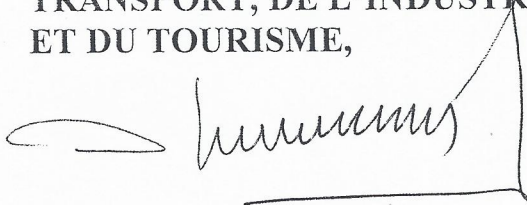 TRANSPORT, DE L'INDUSTR
ET DU TOURISME,